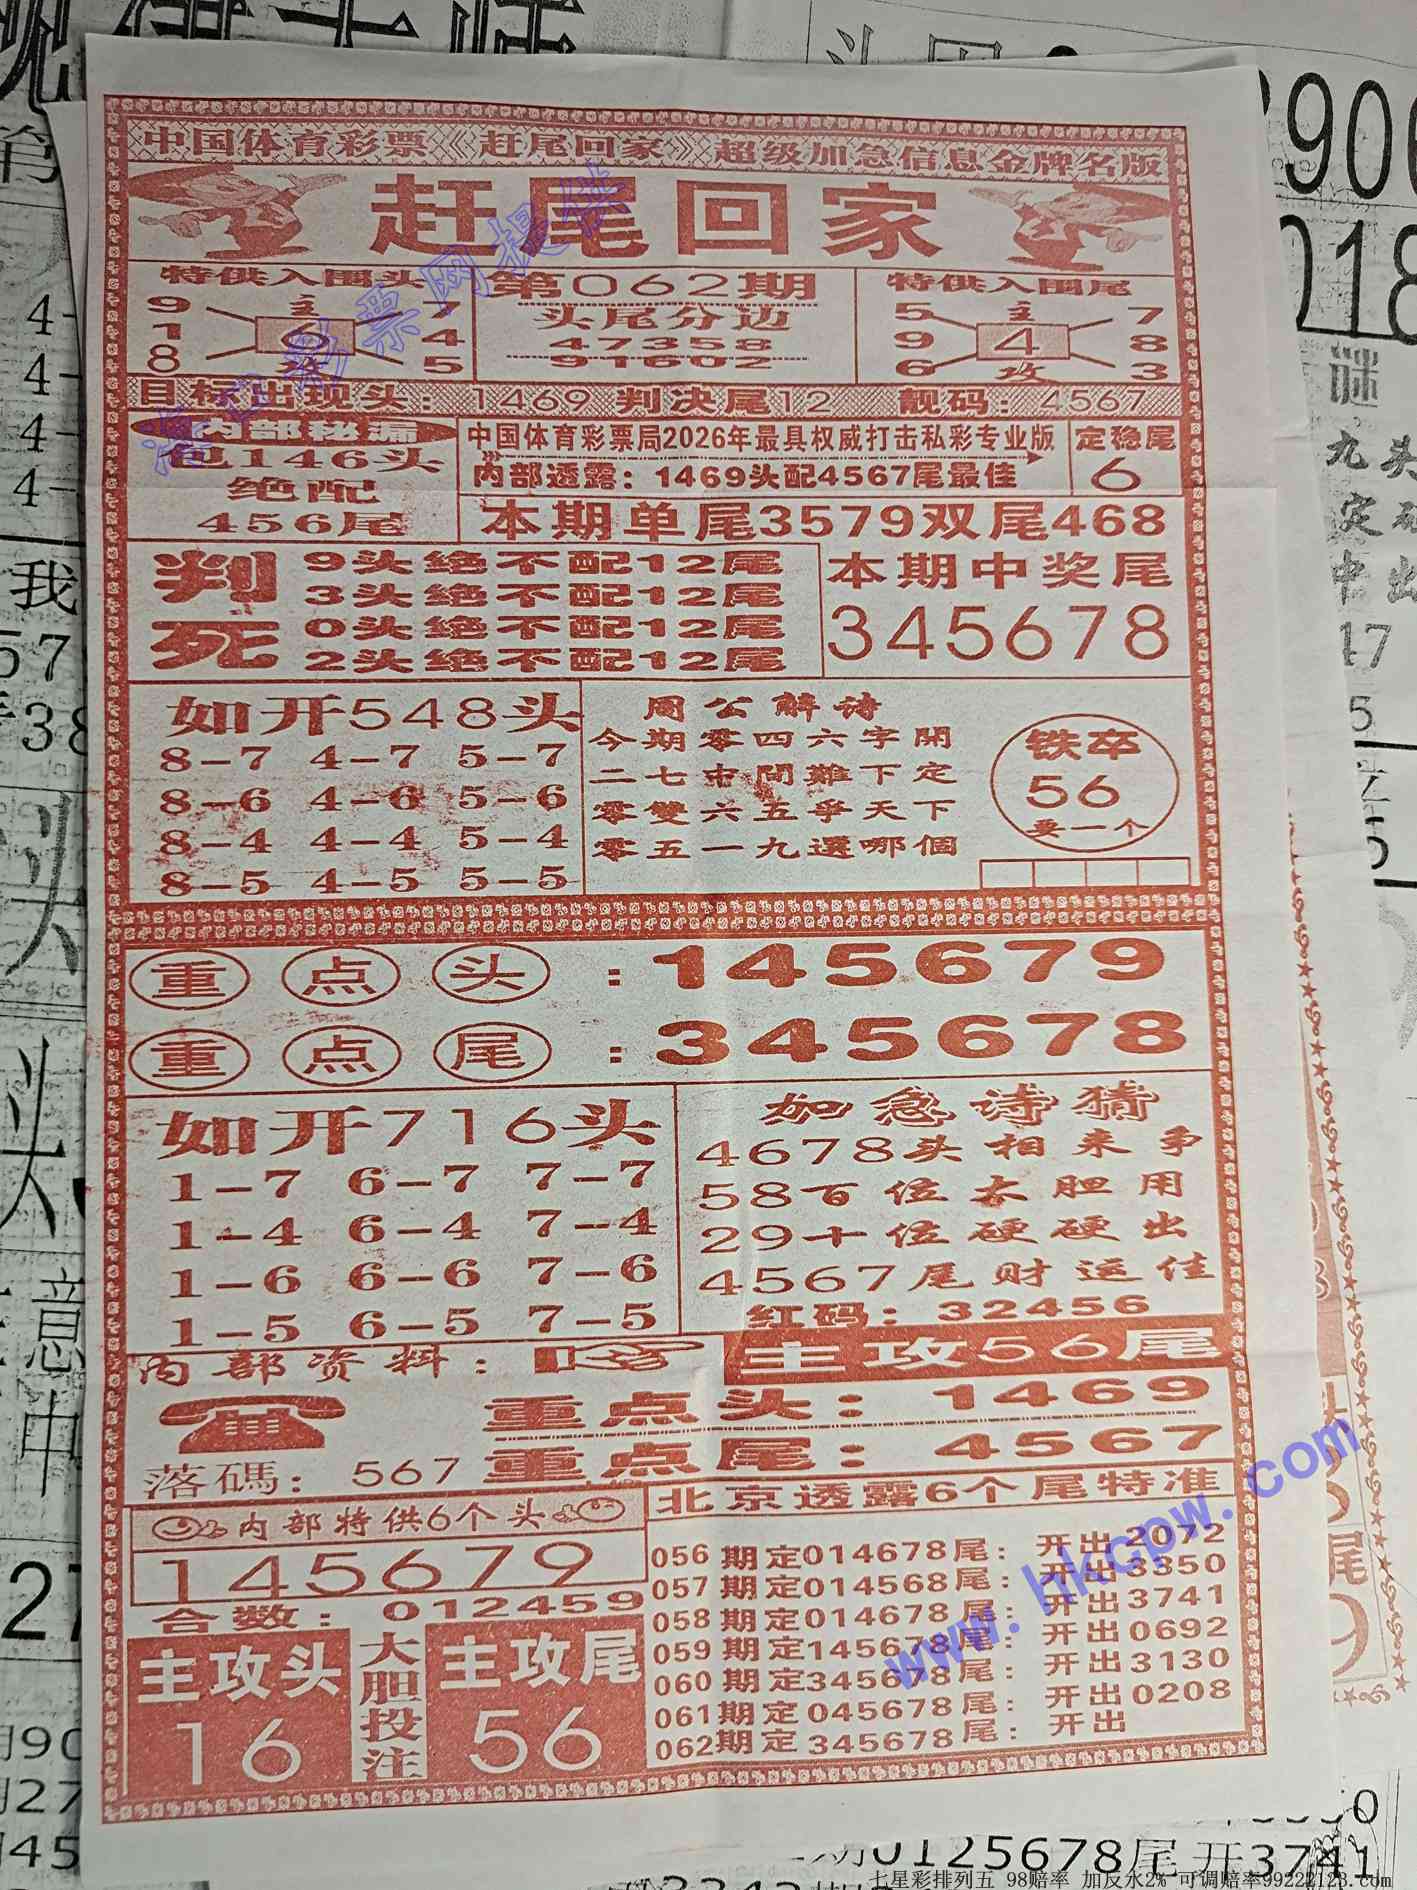 中国体育彩票《赶尾回家》超级加急信息金牌名版
赶尾回家
特供入围头
9 主 7
1 6 4
8 攻 5
第062期
头尾分边
47358
91602
特供入围尾
5 主 7
9 4 8
6 攻 3
目标出现头：1469 判决尾12 靓码：4567
内部秘漏
包146头
绝配
456尾
中国体育彩票局2026年最具权威打击私彩专业版
内部透露：1469头配4567尾最佳
定稳尾
6
本期单尾3579双尾468
判死
9头绝不配12尾
3头绝不配12尾
0头绝不配12尾
2头绝不配12尾
本期中奖尾
345678
如开548头
8-7 4-7 5-7
8-6 4-6 5-6
8-4 4-4 5-4
8-5 4-5 5-5
周公解诗
今期零四六字開
二七中間難下定
零雙六五爭天下
零五一九選哪個
铁卒
56
要一个
重点头：145679
重点尾：345678
如开716头
1-7 6-7 7-7
1-4 6-4 7-4
1-6 6-6 7-6
1-5 6-5 7-5
加急诗猜
4678头相来争
58百位大胆用
29十位硬硬出
4567尾财运佳
红码：32456
内部资料：
主攻56尾
重点头：1469
落碼：567
重点尾：4567
内部特供6个头
145679
合数：012459
主攻头
16
大胆投注
主攻尾
56
北京透露6个尾特准
056期定014678尾：开出2072
057期定014568尾：开出3350
058期定014678尾：开出3741
059期定145678尾：开出0692
060期定345678尾：开出3130
061期定045678尾：开出0208
062期定345678尾：开出
www.hkcpw.com
0125678尾开3741
七星彩排列五 98赔率 加反水2% 可调赔率99222123.com